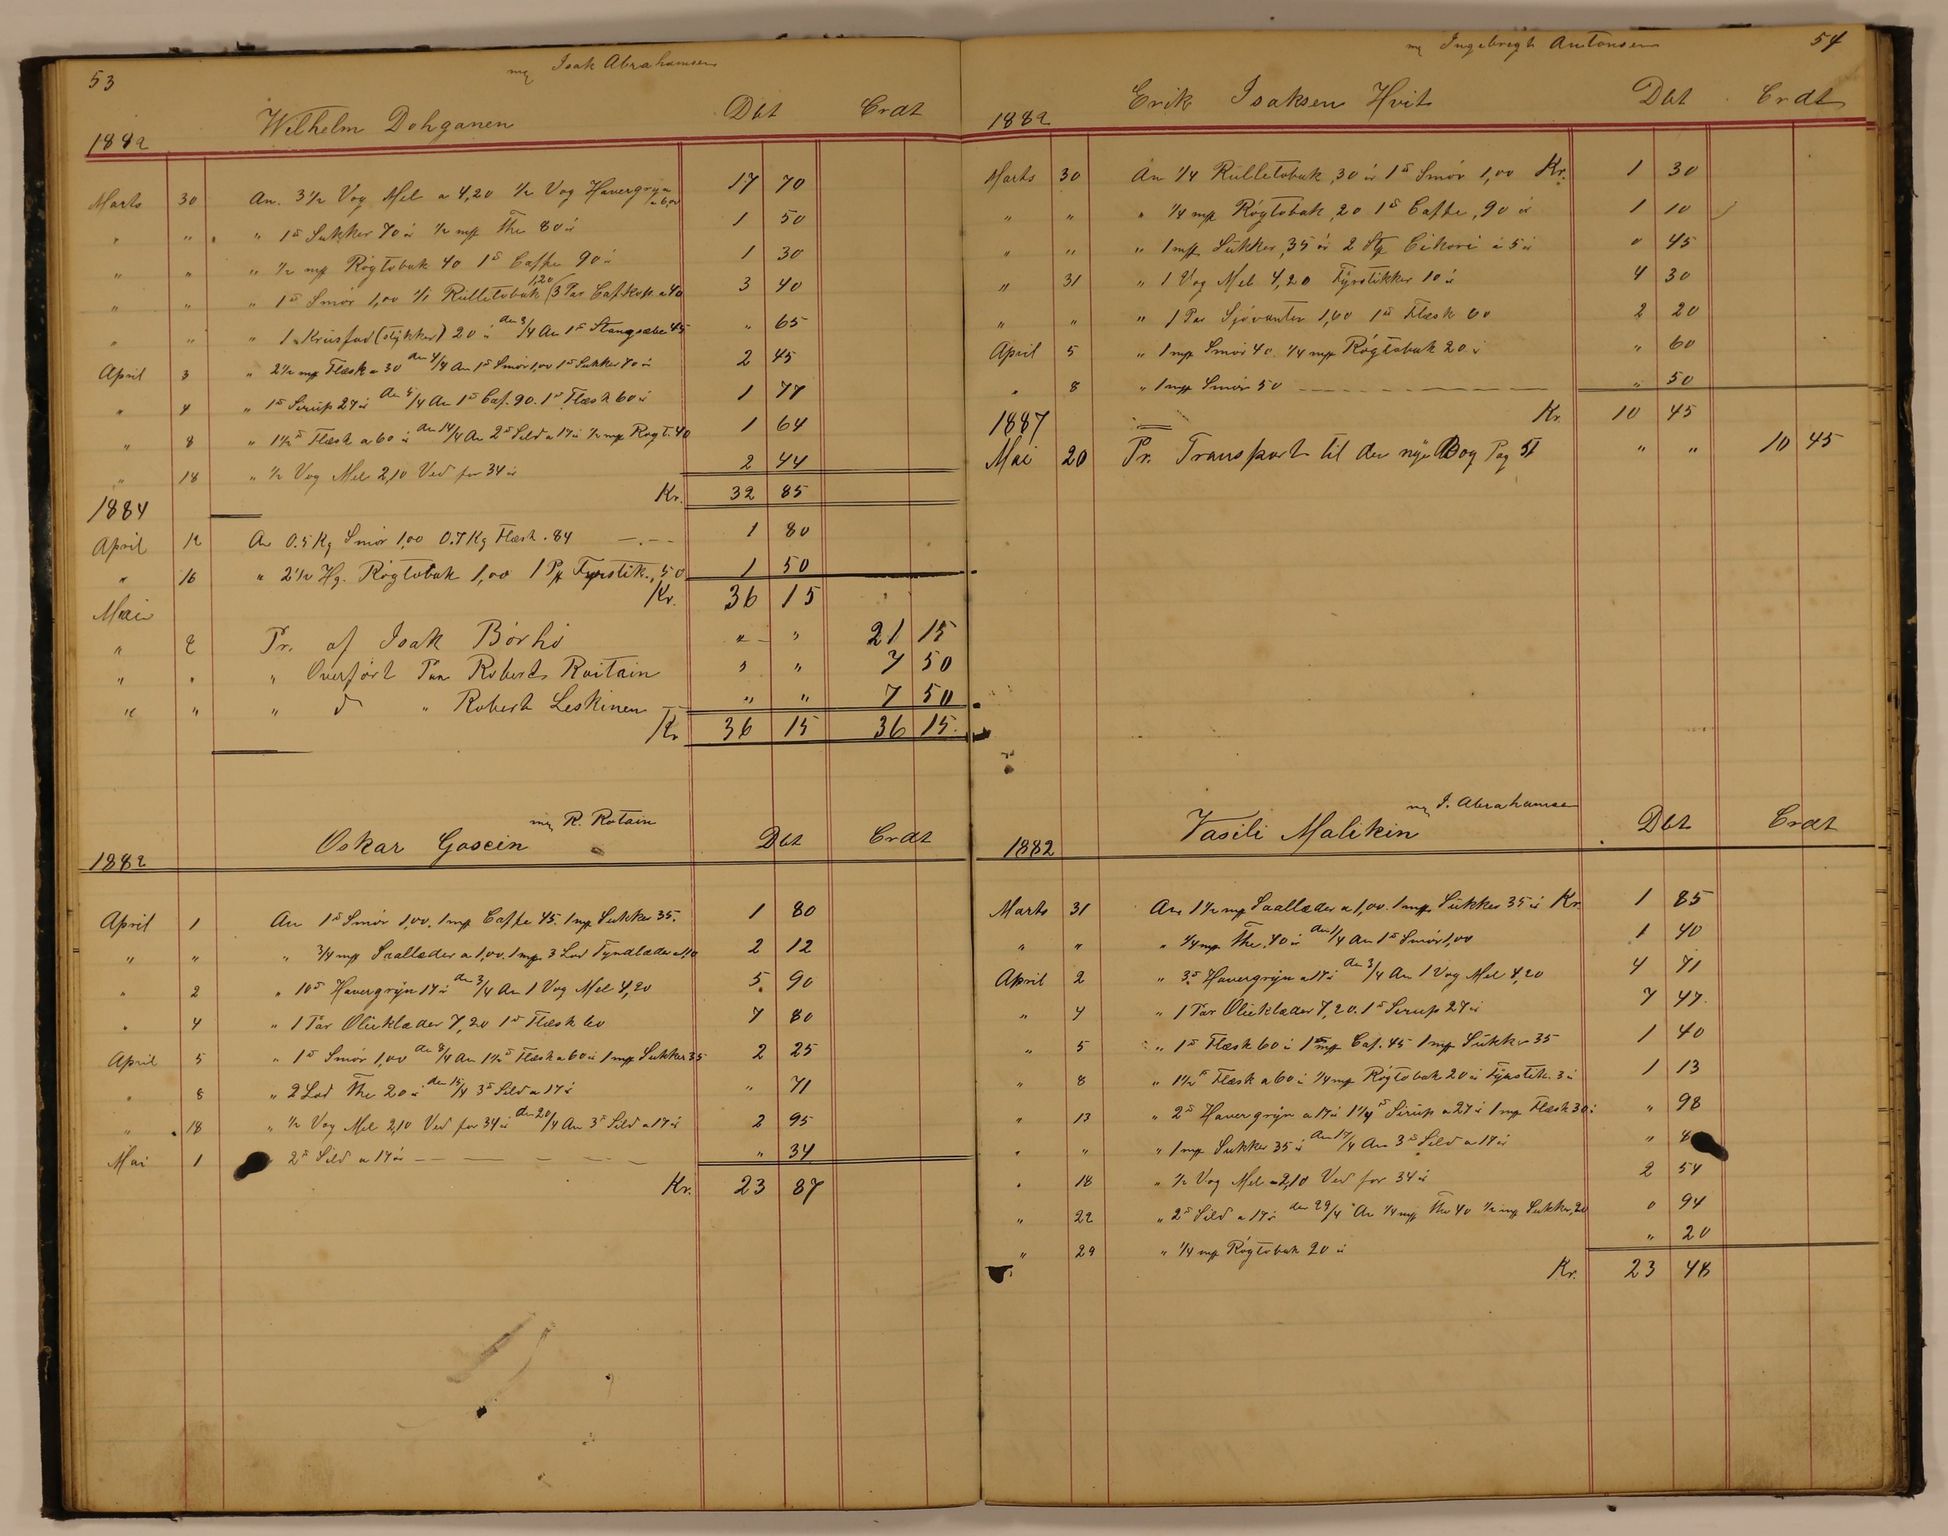 53
mę Isak Abrahamsen
Wilhelm Dohganen Dbt Crdt
1882
Marts 30 An. 3 1/2 Vog Mel a 4,20 1/2 Vog Havergryn a 6,00 17 70
" " " 1 ℔ Sukker 70 ör 1/2 mg The 80 ör 1 50
" " " 1/2 mg Rögtobak 40 1 ℔ Caffe 90 ör 1 30
" " " 1 ℔ Smör 1,00 1/1 Rulletobak 1,20 (3 Par Caf. Kop. a 40 3 40
" " " 1 Krusfad (stykker) 20 ör den 3/4 An 1 ℔ Stangsæbe 45 " 65
April 3 " 2 1/2 mg Flæsk a 30 den 4/4 An 1 ℔ Smör 1,00 1 ℔ Sukker 70 ör 2 45
" 4 " 1 ℔ Sirup 27 ör den 5/4 An 1 ℔ Caf. 90. 1 ℔ Flæsk 60 ör 1 77
" 8 " 1 1/2 ℔ Flæsk a 60 ör den 14/4 An 2 ℔ Sild a 17 ör 1/2 mg Rögt. 40 1 64
" 18 " 1/2 Vog Mel 2,10 Ved for 34 ör 2 44
Kr. 32 85
1884
April 12 An 0.5 Kg Smör 1,00 0.7 Kg Flæsk .84 1 80
" 16 " 2 1/2 Hg. Rögtobak 1,00 1 Pk Fyrstik., 50 1 50
Kr. 36 15
Mai
" 2 Pr. af Isak Börhi " " 21 15
" " " Overfört Paa Roberts Roitain " " 7 50
" " " do " Robert Leskinen " " 7 50
Kr 36 15 36 15.
mę R. Rotain
Oskar Gosein Dbt Crdt
1882
April 1 An 1 ℔ Smör 1,00. 1 mg Caffe 45. 1 mg Sukker 35. 1 80
" " " 3/4 mg Saallæder a 1,00. 1 mg 3 Lod Tyndlæder a 1,10 2 12
" 2 " 10 ℔ Havergryn 17 ör den 3/4 An 1 Vog Mel 4,20 5. 90
" 4 " 1 Par Olieklæder 7,20 1 ℔ Flæsk 60 7 80
April 5 " 1 ℔ Smör 1,00 den 8/4 An 1 1/2 ℔ Flæsk a 60 ör 1 mg Sukker 35 2 25
" 8 " 2 Lod The 20 ör den 15/4 3 ℔ Sild a 17 ör " 71
" 18 " 1/2 Vog Mel 2,10 Ved for 34 ör den 20/4 An 3 ℔ Sild a 17 ör 2 95
Mai 1 2 ℔ Sild a 17 ör " 34
Kr. 23 87
54
mę Ingebregt Antonsen
Erik Isaksen Hvit Dbt Crdt
1882
Marts 30 An 1/4 Rulletobak ,30 ör 1 ℔ Smör 1,00 Kr. 1 30
" " " 1/4 mg Rögtobak ,20 1 ℔ Caffe ,90 ör 1 10
" " " 1 mg Sukker ,35 ör 2 Stp Cikori á 5 ör 0 45
" 31 " 1 Vog Mel 4,20 Fyrstikker 10 ör 4 30
" " " 1 Par Sjövanter 1,60 1 ℔ Flæsk 60 2 20
April 5 " 1 mg Smör 40. 1/4 mg Rögtobak 20 ör " 60
" 8 " 1 mg Smör 50 " 50
1887 Kr. 10 45
Mai 20 Pr. Transport til den nye Bog Pag 51 " " 10 45
mę I. Abrahamsen
Vasili Malikin Dbt Crdt
1882
Marts 31 An 1 1/2 mg Saallæder a 1,00. 1 mg Sukker 35 ör Kr. 1 85
" " " 1/4 mg The .40 ör den 1/4 An 1 ℔ Smör 1,00 1 40
April 2 " 3 ℔ Havergryn a 17 ör den 3/4 An 1 Vog Mel 4,20 4 71
" 4 " 1 Par Olieklæder 7,20. 1 ℔ Sirup 27 ör 7 47.
" 5 " 1 ℔ Flæsk 60 ör 1 mg Caf. 45 1 mg Sukker 35 1 40
" 8 " 1 1/2 ℔ Flæsk a 60 ör 1/4 mg Rögtobak 20 ör Fyrstik. 3 ör 1 13
" 13 " 2 ℔ Havergryn a 17 ör 1 1/4 ℔ Sirup a 27 ör 1 mg Flæsk 30 ör " 98
" " " 1 mg Sukker 35 ör den 17/4 An 3 ℔ Sild a 17 ör "
" 18 " 1/2 Vog Mel a 2,10 Ved for 34 ör 2 54
" 22 " 2 ℔ Sild a 17 ör den 29/4 An 1/4 mg The 40 1/2 mg Sukker, 20 0 94
" 29 " 1/4 mg Rögtobak 20 ör " 20
Kr. 23 48